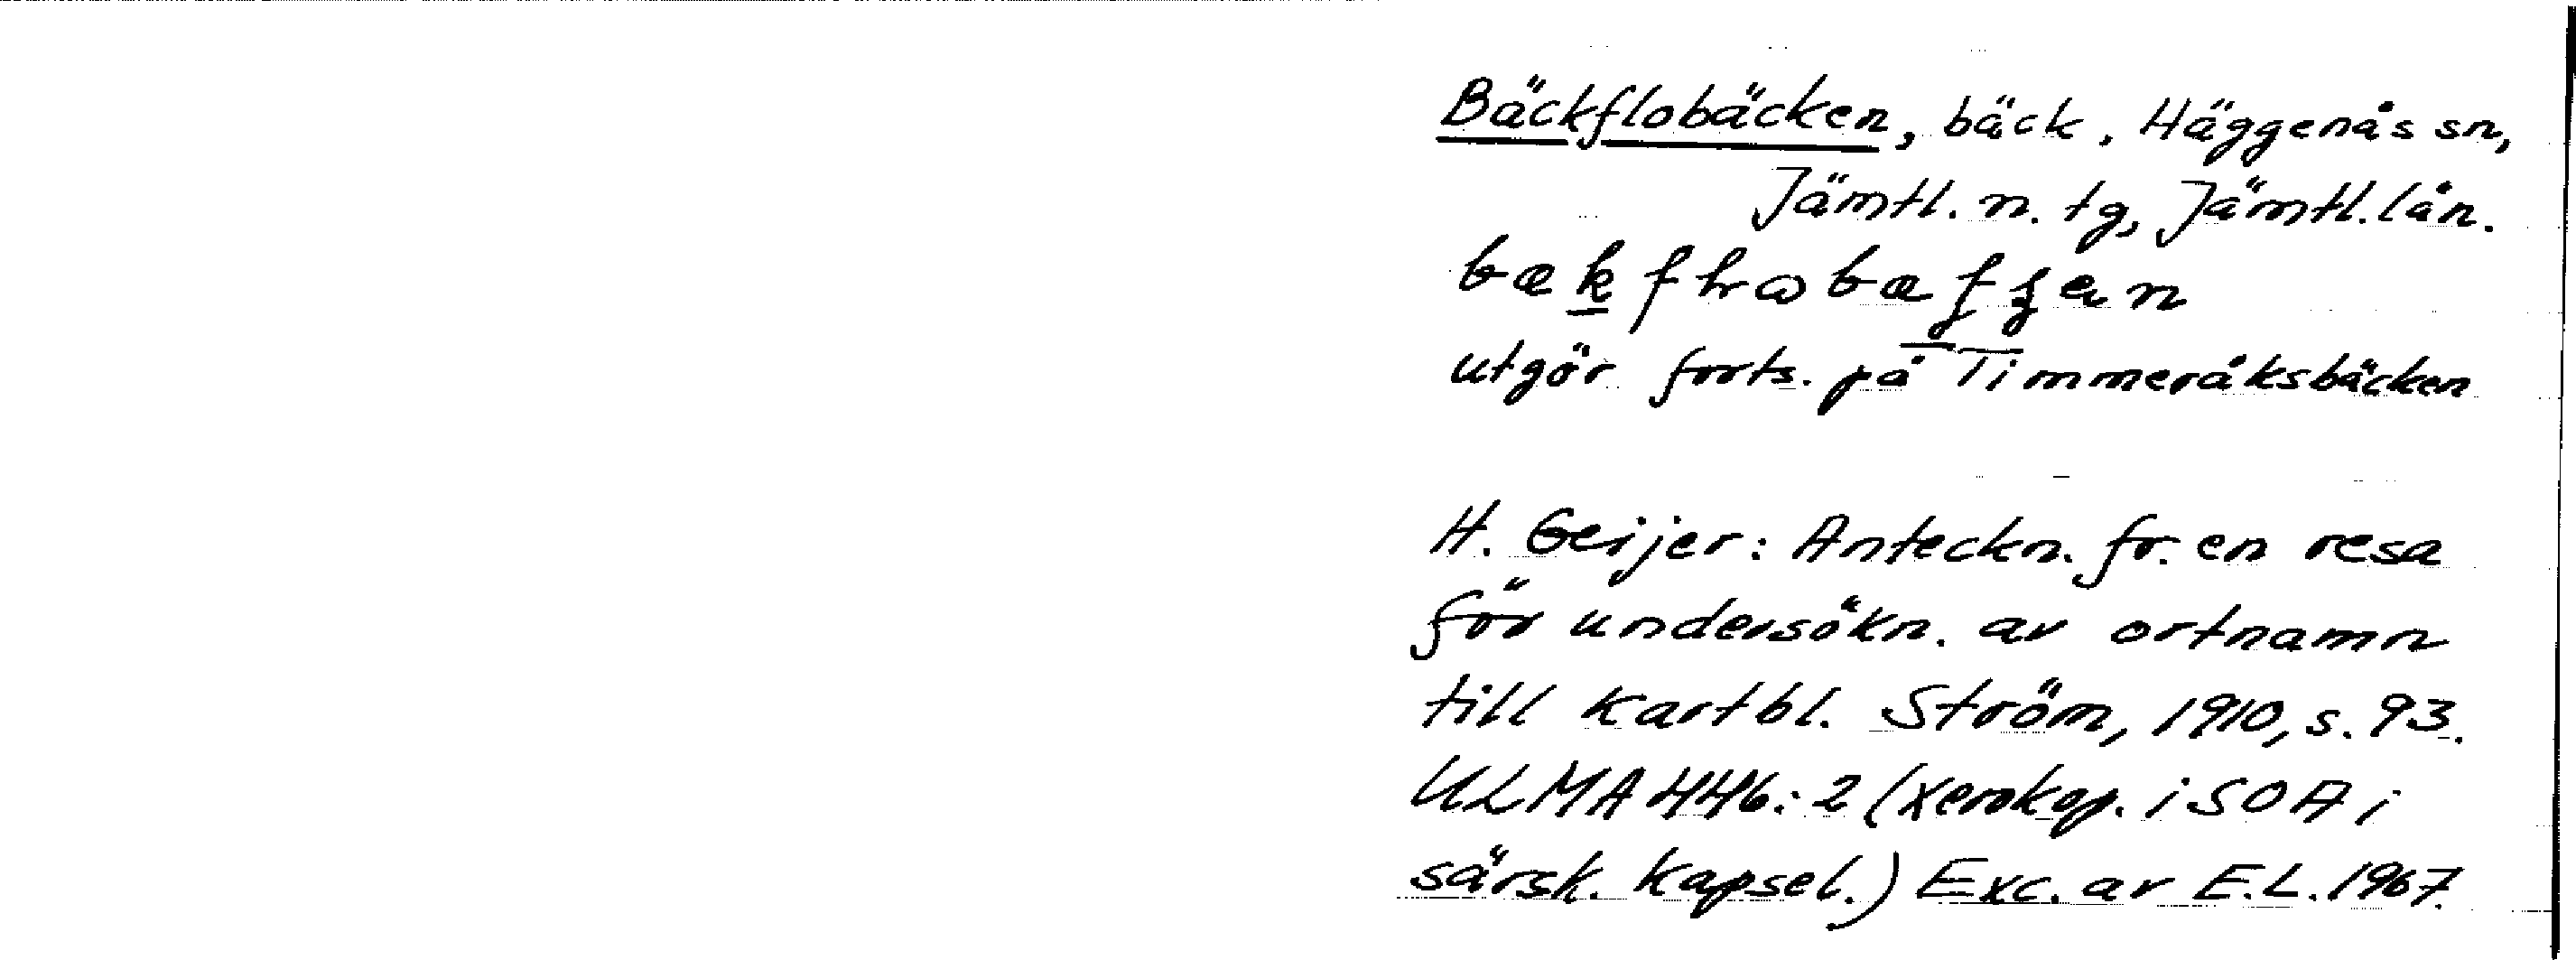 Bäckflobäcken, bäck. Häggenås sn,
Jämtl. n. tg, Jämtl. län.
utgör forts. på Timmeråksbäcken
H. Geijer: Anteckn. fr. en resa
för undersökn. av ortnamn
till kartbl. Ström, 1910, s. 93.
ULMA 446:2 (Xerokop. i SOA i
särsk. kapsel.) Exc. av E.L. 1967.